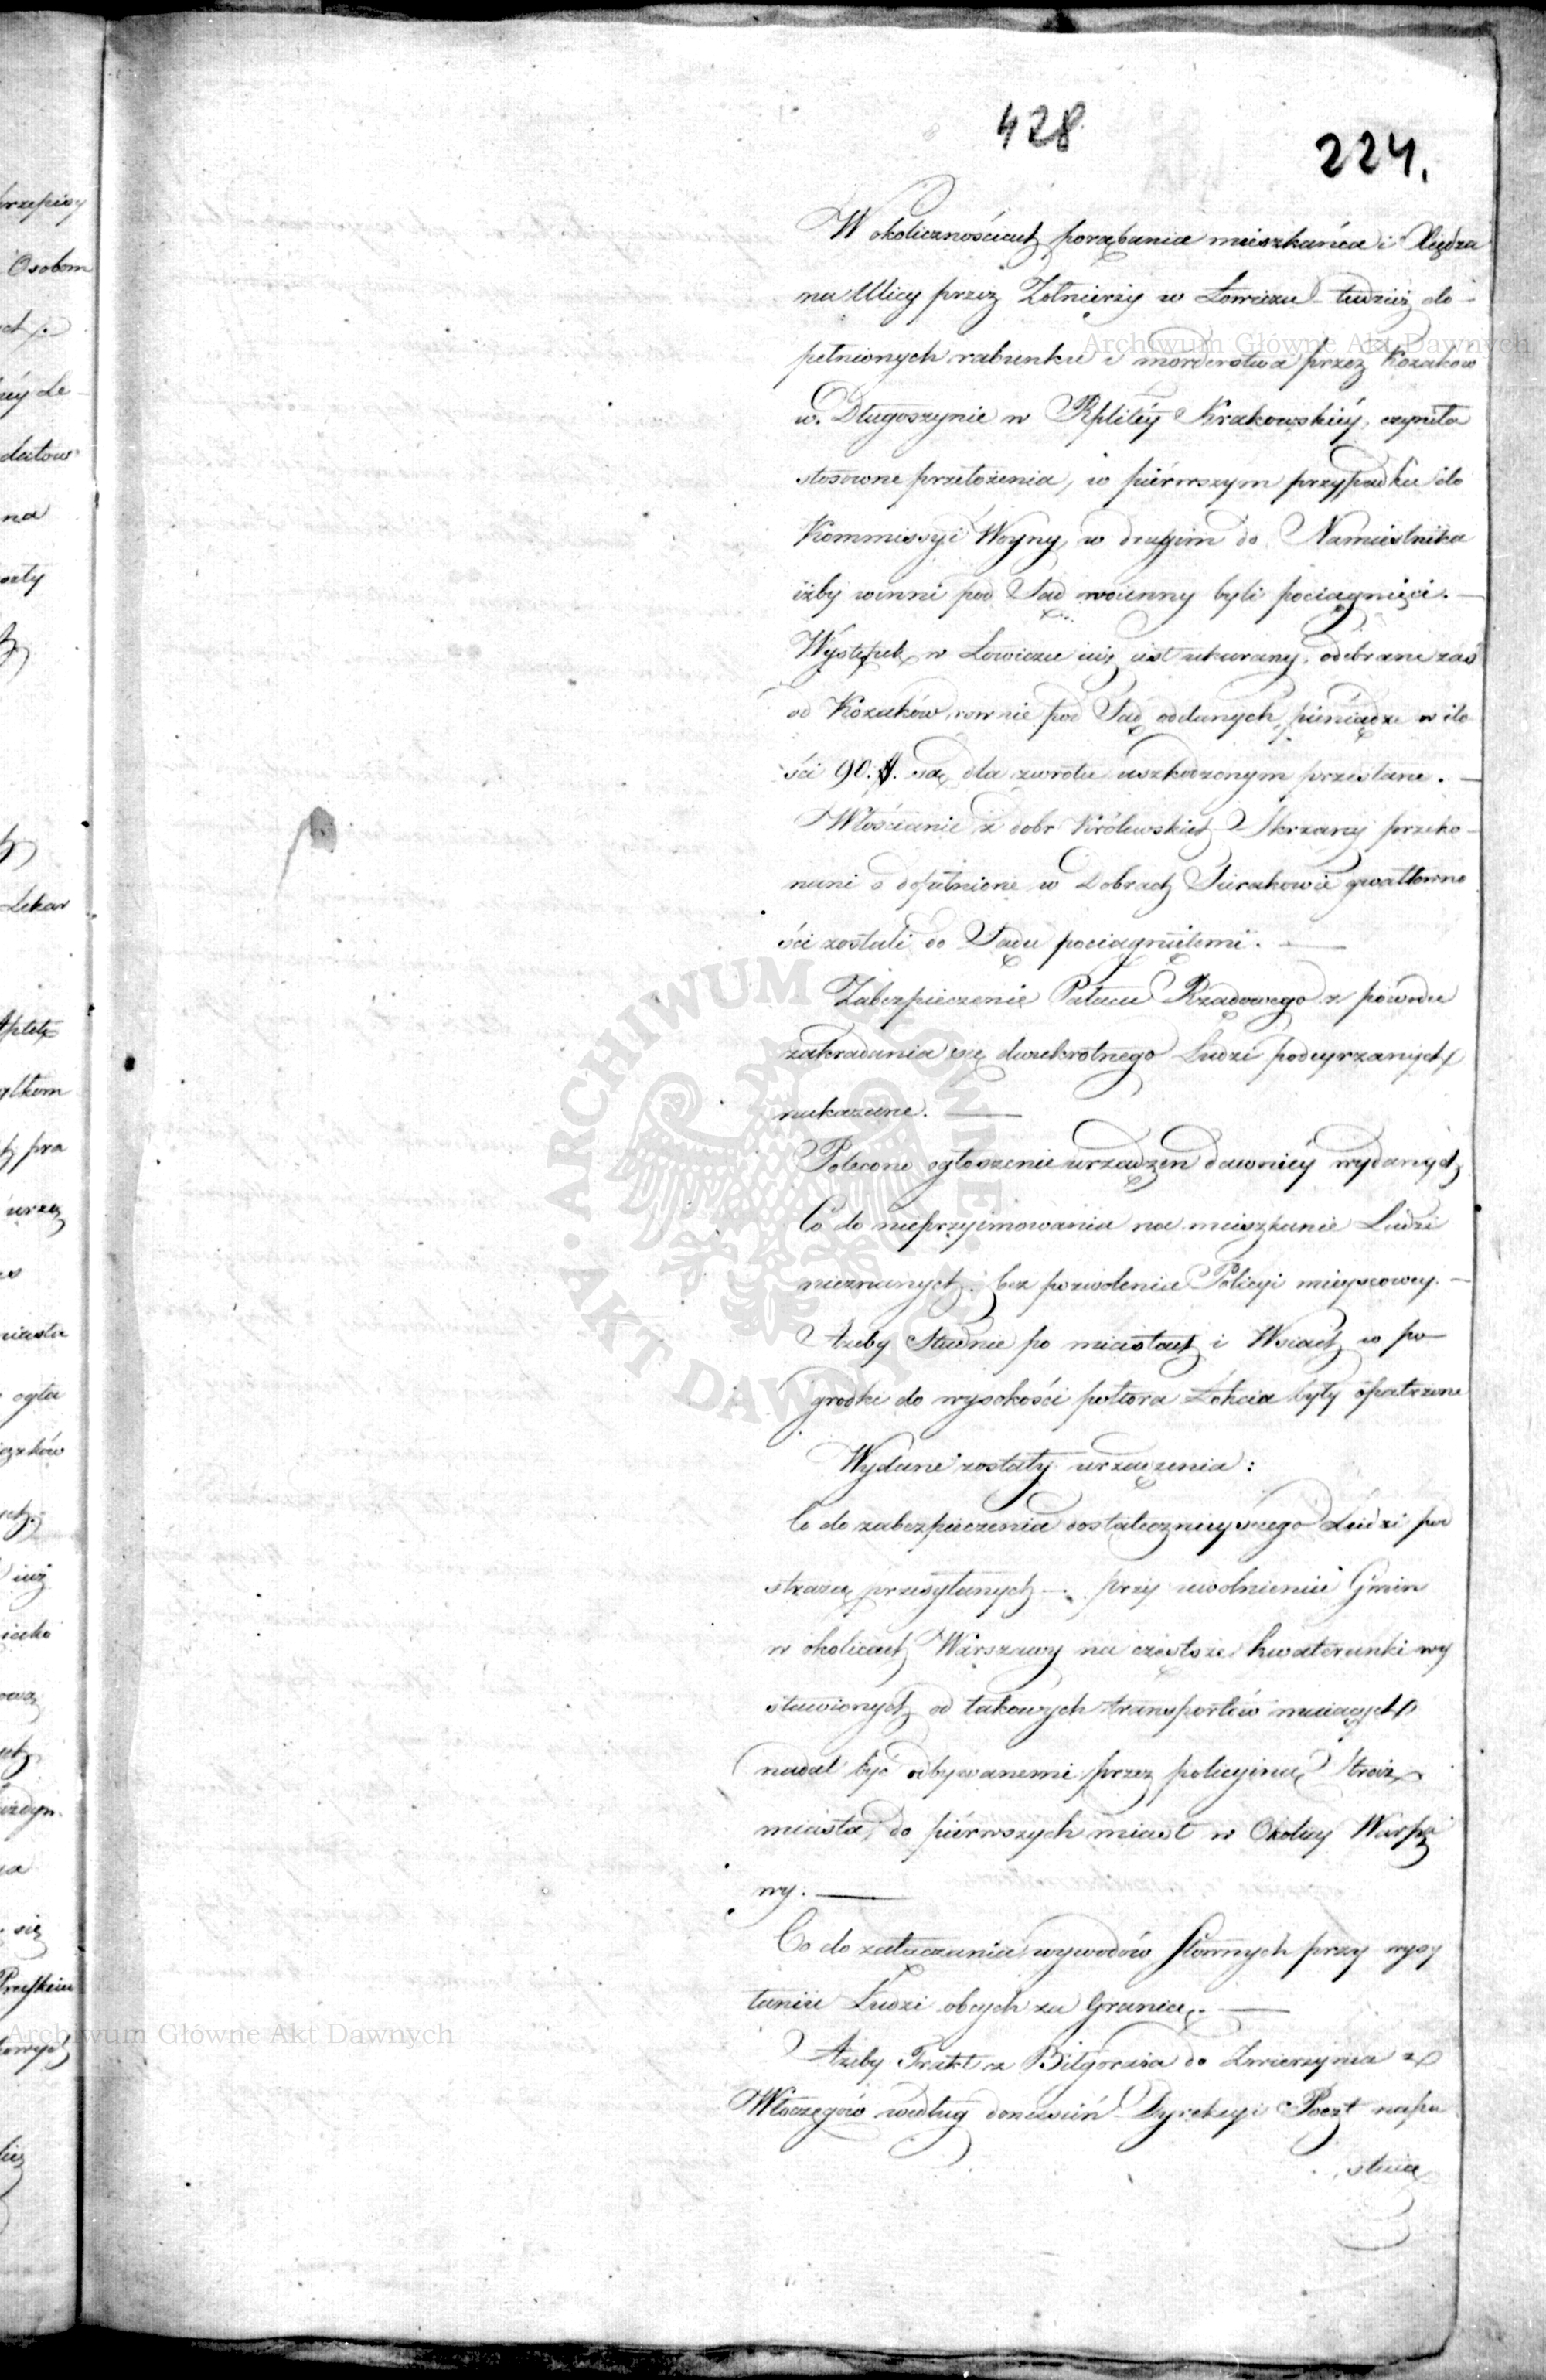 428
224.
W okolicznościach porąbania mieszkańca i Xiędza
na Ulicy przez Żołnierzy w Łowiczu tudzież do-
pełnionych rabunku i morderstwa przez Kozaków
w Długoszynie w Rplitéy Krakowskiéy, czyniła
stosowne przełożenia, w piérwszym przypadku do
Kommissyi Woyny, w drugim do Namiestnika
iżby winni pod Sąd woienny byli pociągnięci. —
Występek w Łowiczu iuż iest ukarany, odebrane zaś
od Kozaków, rownie pod Sąd oddanych, pieniądze w ilo
ści 90. są dla zwrotu uszkodzonym przesłane. —
Włościanie z dobr Królewskich Skrzany przeko-
nani o dopełnione w Dobrach Sierakowie gwałtowno
ści zostali do Sądu pociągniętemi. —
Zabezpieczenie Pałacu Rządowego z powodu
zakradania się dwukrotnego Ludzi podeyrzanych
nakazane. —
Polecono ogłoszenie urządzeń dawniéy wydanych
Co do nieprzyimowania na mieszkanie Ludzi
nieznanych bez pozwolenia Policyi mieyscowey. —
Ażeby Studnie po miastach i Wsiach w po-
grodki do wysokości półtora Łokcia były opatrzone
Wydane zostały urządzenia:
Co do zabezpieczenia dostatecznieyszego Ludzi pod
strażą przesyłanych — przy uwolnieniu Gmin
w okolicach Warszawy na częstsze kwaterunki wy
stawionych od takowych transportów maiących
nadal być odbywanemi przez policyiną Straż
miasta, do piérwszych miast w Okolicy Warsza
wy. —
Co do załączania wywodów słownych przy wysy
łaniu Ludzi obcych za Granicę. —
Ażeby Trakt z Biłgoraia do Zwierzyńca z
Włoczęgów według doniesień Dyrekcyi Poczt napa
stuią
przepisy
Osobom
na
Lekar
iuż
się
Archiwum Główne Akt Dawnych
ARCHIWUM GŁÓWNE AKT DAWNYCH
Archiwum Główne Akt Dawnych